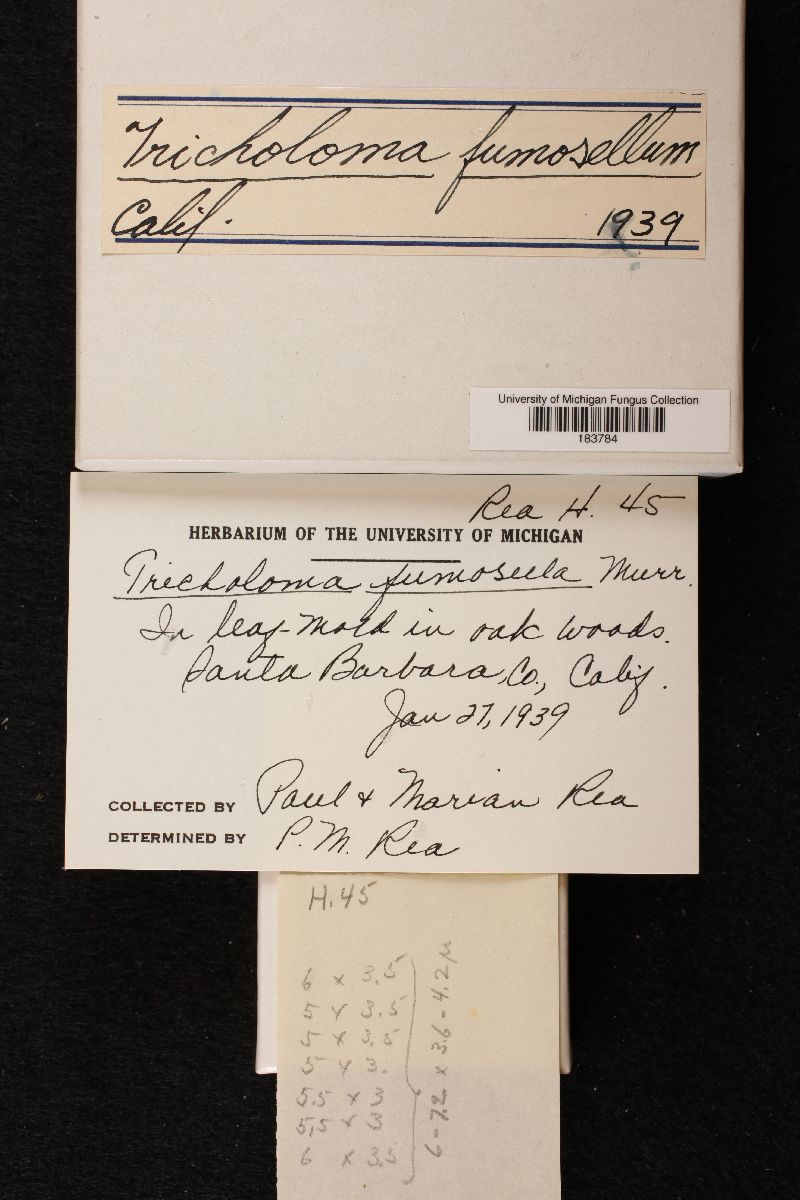 Tricholoma fumosellum
Calif. 1939
University of Michigan Fungus Collection
183784
Rea H. 45
HERBARIUM OF THE UNIVERSITY OF MICHIGAN
Tricholoma fumosella Murr.
In leaf-mold in oak woods.
Santa Barbara, Co., Calif.
Jan 27, 1939
COLLECTED BY Paul & Marian Rea
DETERMINED BY P. M. Rea
H. 45
6 x 3.5
5 x 3.5
5 x 3.5
5 x 3.
5.5 x 3
5.5 x 3
6 x 3.5
6-7.2 x 3.6-4.2 µ